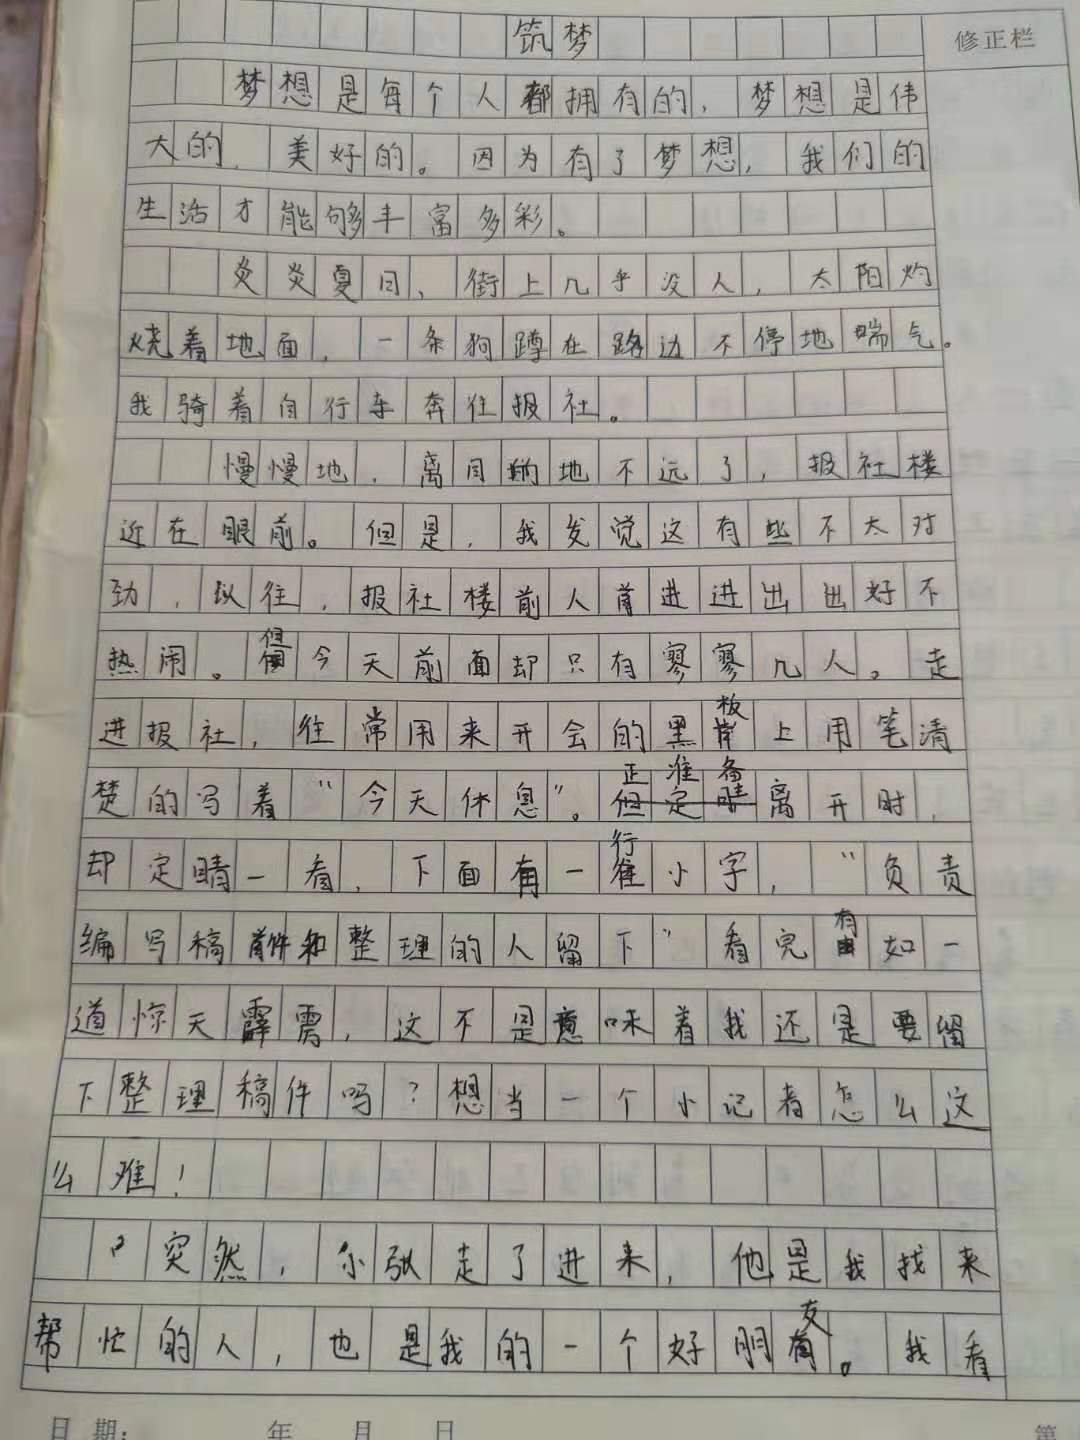 筑梦
修正栏
梦想是每个人都拥有的，梦想是伟
大的，美好的。因为有了梦想，我们的
生活才能够丰富多彩。
炎炎夏日、街上几乎没人，太阳灼
烧着地面，一条狗蹲在路边不停地喘气。
我骑着自行车奔往报社。
慢慢地，离目的地不远了，报社楼
近在眼前。但是，我发觉这有些不太对
劲，以往，报社楼前人员进进出出好不
热闹。但今天前面却只有寥寥几人。走
进报社，往常用来开会的黑板上用笔清
楚的写着“今天休息”。正准备离开时，
却定睛一看，下面有一行小字，“负责
编写稿件和整理的人留下”看完有如一
道惊天霹雳，这不是意味着我还是要留
下整理稿件吗？想当一个小记者怎么这
么难！
突然，小张走了进来，他是我找来
帮忙的人，也是我的一个好朋友。我看
日期： 年 月 日 第